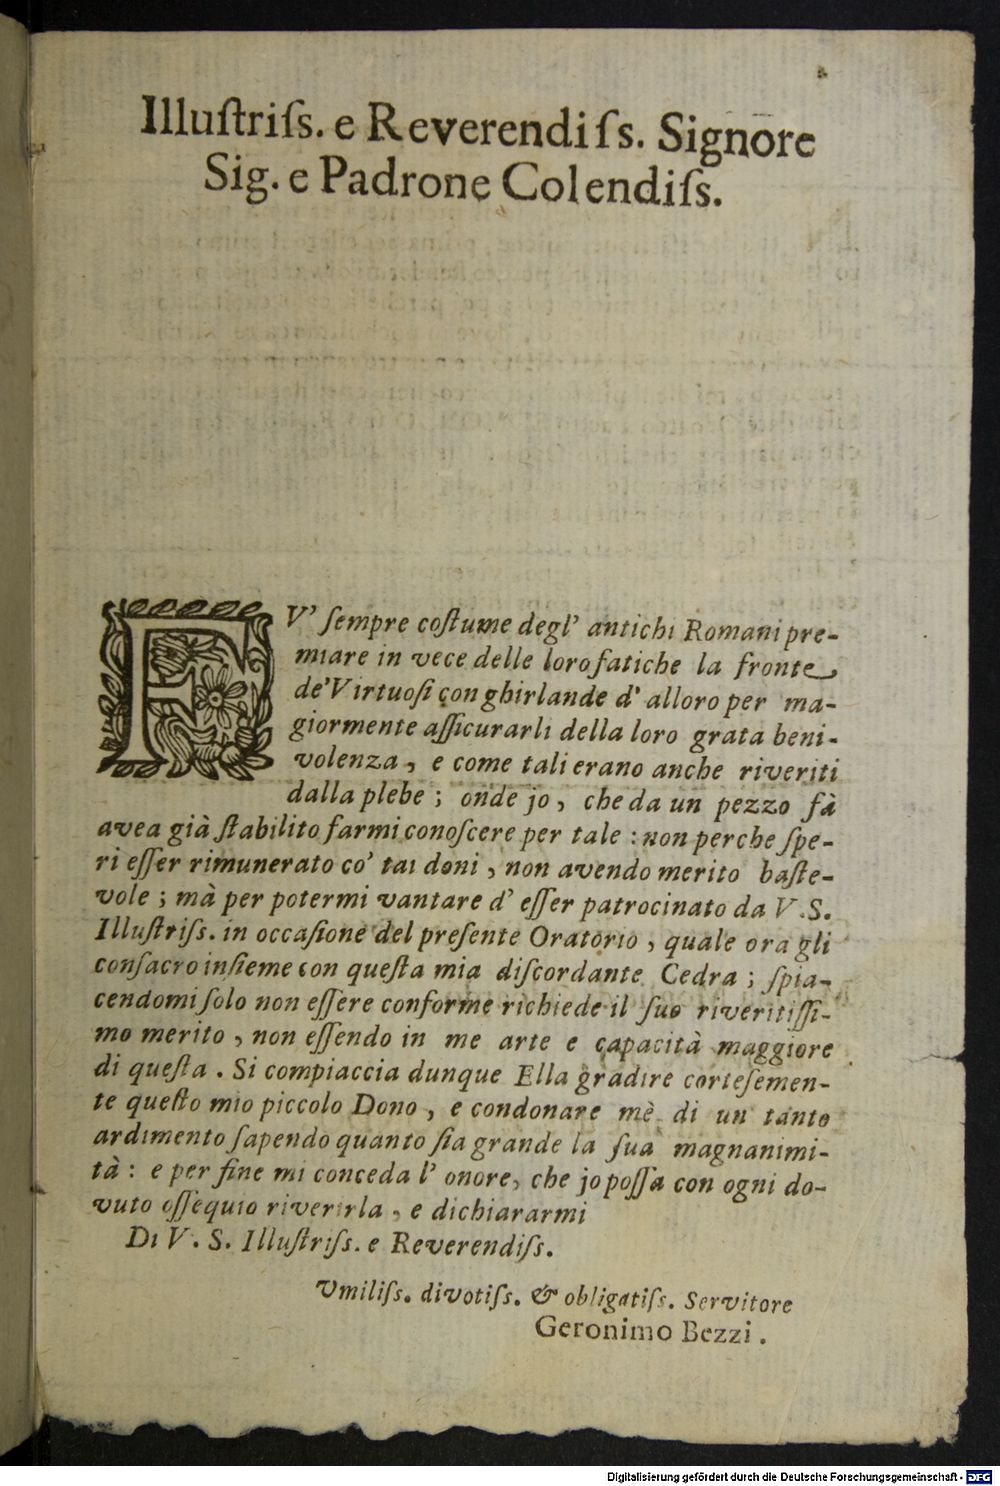 Illuſtriſs. e Reverendiſs. Signore
Sig. e Padrone Colendiſs.
FV' ſempre coſtume degl' antichi Romani pre-
miare in vece delle loro fatiche la fronte
de' Virtuoſi con ghirlande d' alloro per ma-
giormente aſſicurarli della loro grata beni-
volenza, e come tali erano anche riveriti
dalla plebe; onde jo, che da un pezzo fà
avea già ſtabilito farmi conoſcere per tale: non perche ſpe-
ri eſſer rimunerato co' tai doni, non avendo merito baſte-
vole; mà per potermi vantare d' eſſer patrocinato da V.S.
Illuſtriſs. in occaſione del preſente Oratorio, quale ora gli
conſacro inſieme con queſta mia diſcordante Cedra; ſpia-
cendomi ſolo non eſſere conforme richiede il ſuo riveritiſſi-
mo merito, non eſſendo in me arte e capacità maggiore
di queſta. Si compiaccia dunque Ella gradire corteſemen-
te queſto mio piccolo Dono, e condonare mè di un tanto
ardimento ſapendo quanto ſia grande la ſua magnanimi-
tà: e per fine mi conceda l' onore, che jo poſſa con ogni do-
vuto oſſequio riverirla, e dichiararmi
Di V. S. Illuſtriſs. e Reverendiſs.
Vmiliſs. divotiſs. & obligatiſs. Servitore
Geronimo Bezzi.
Digitalisierung gefördert durch die Deutsche Forschungsgemeinschaft - DFG